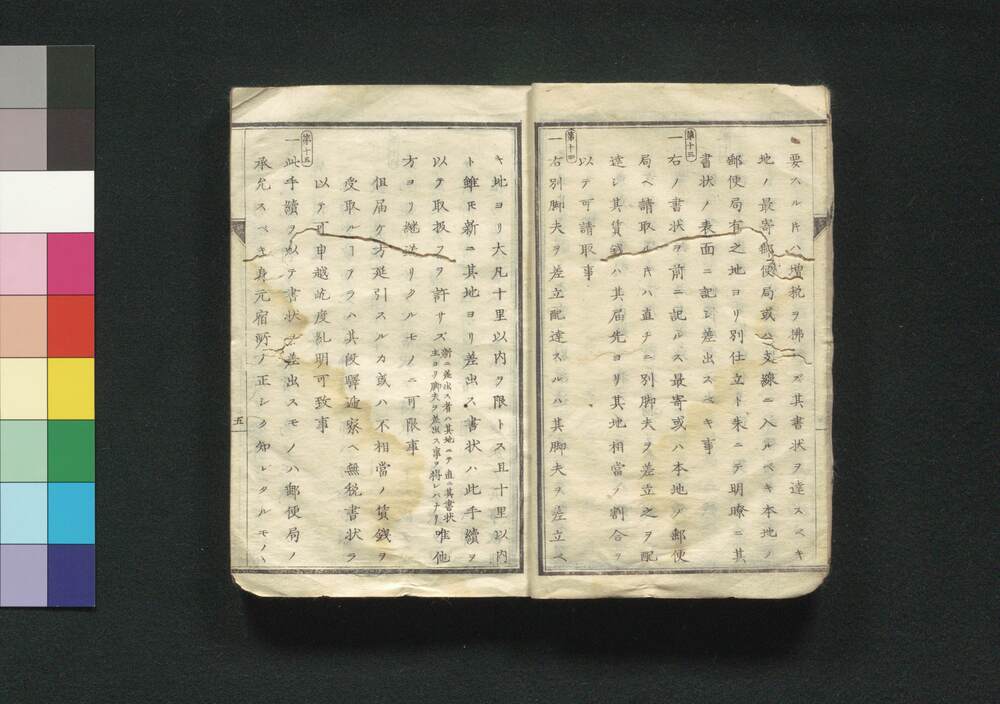 要スル時ハ増税ヲ拂ハズ其書状ヲ達スベキ
地ノ最寄郵便局或ハ支線ニ入ルベキ本地ノ
郵便局有之地ヨリ別仕立ト朱ニテ明瞭ニ其
書状ノ表面ニ記シ差出スベキ事
第十三
一右ノ書状ヲ前ニ記ルス最寄或ハ本地ノ郵便
局ヘ請取ル時ハ直チニ別脚夫ヲ差立之ヲ配
達シ其賃錢ハ其届先ヨリ其地相當ノ割合ヲ
以テ可請取事
第十四
一右別脚夫ヲ差立配達スルハ其脚夫ヲ差立ベ
キ地ヨリ大凡十里以内ヲ限トス且十里以内
ト雖𪜈新ニ其地ヨリ差出ス書状ハ此手續ヲ
以テ取扱フヲ許サズ新ニ差出ス者ハ其地ニテ直ニ其書状
主ヨリ脚夫ヲ差出ス事ヲ得レハナリ唯他
方ヨリ継送リクルモノニ可限事
但届ケ方延引スルカ或ハ不相當ノ賃錢ヲ
受取ルヿアラハ其段驛逓寮ヘ無税書状ヲ
以テ可申越屹度糺明可致事
第十五
一此手續ヲ以テ書状ヲ差出スモノハ郵便局ノ
承允スベキ身元宿所ノ正シク知レタルモノヽ
五